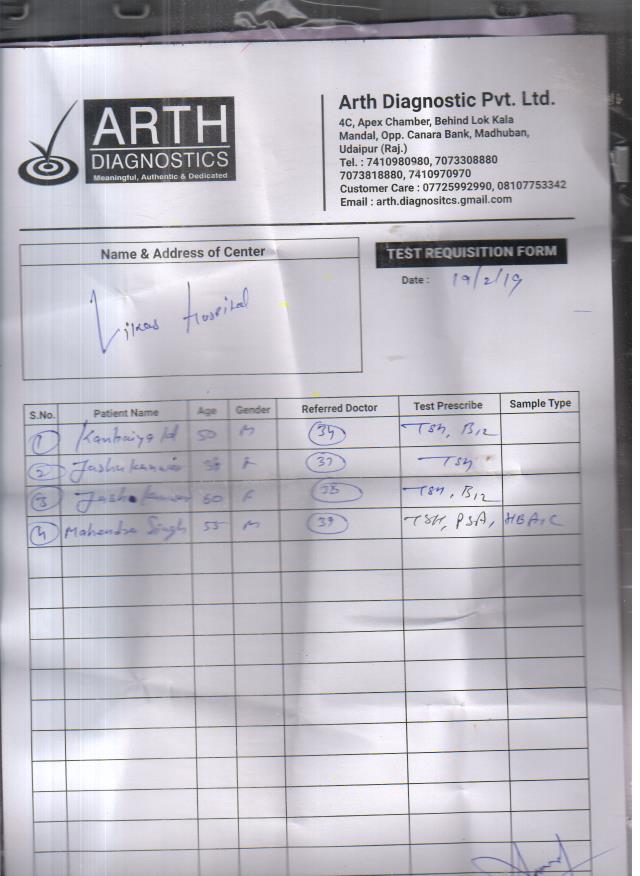 ARTH
DIAGNOSTICS
Meaningful, Authentic & Dedicated
Arth Diagnostic Pvt. Ltd.
4C, Apex Chamber, Behind Lok Kala
Mandal, Opp. Canara Bank, Madhuban,
Udaipur (Raj.)
Tel. : 7410980980, 7073308880
7073818880, 7410970970
Customer Care : 07725992990, 08107753342
Email : arth.diagnositcs.gmail.com
Name & Address of Center
TEST REQUISITION FORM
Date : 19/2/19
Vikas Hospital
S.No. Patient Name Age Gender Referred Doctor Test Prescribe Sample Type
1 Kanhaiya lal 50 M 34 TSH, B12
2 Jashu kanwar F 37 TSH
3 Jash kanwar 60 F 38 TSH, B12
4 Mahendra Singh 55 M 39 TSH, PSA, HBA1C